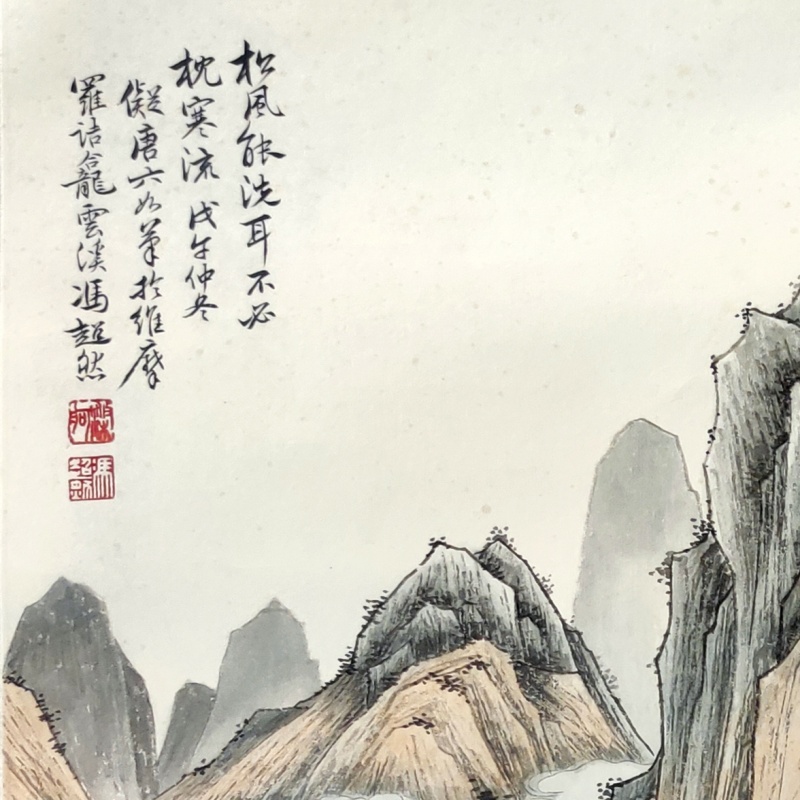 松風能洗耳不必
枕寒流 戊午仲冬
儗唐六如筆於維摩
羅詰合龍雲溪馮超然